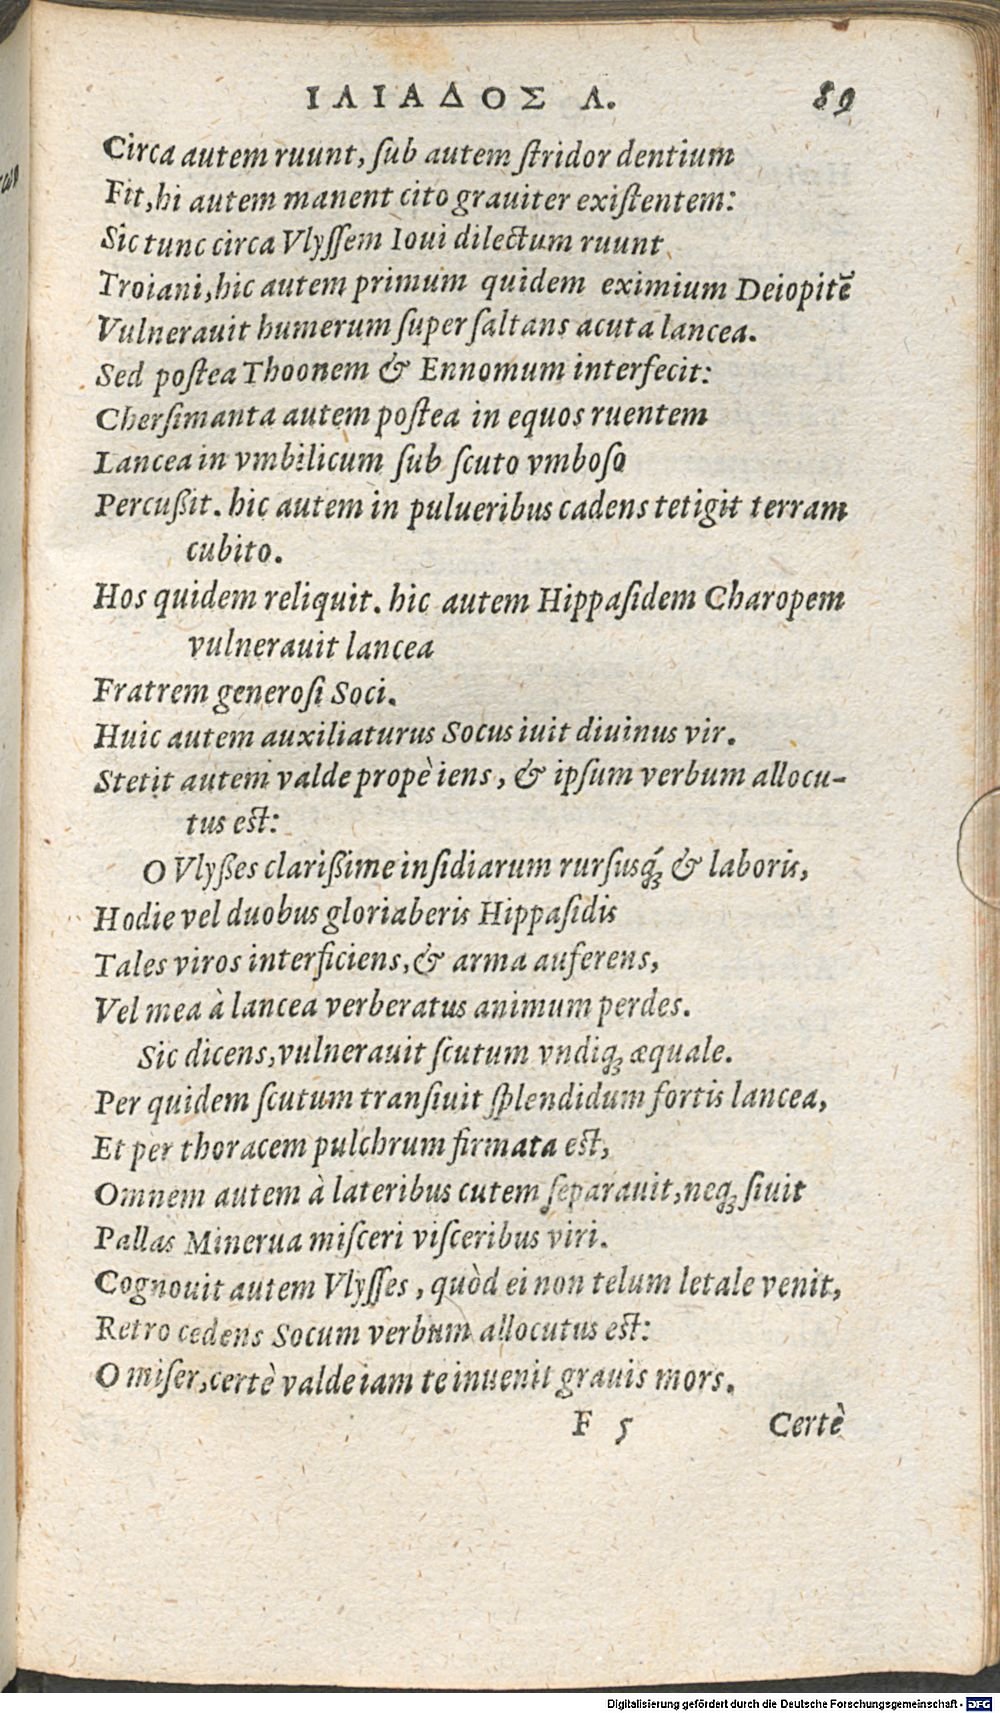 ΙΛΙΑΔΟΣ Λ. 89
Circa autem ruunt, ſub autem ſtridor dentium
Fit, hi autem manent cito grauiter exiſtentem:
Sic tunc circa Vlyſſem Ioui dilectum ruunt
Troiani, hic autem primum quidem eximium Deiopitē
Vulnerauit humerum ſuper ſaltans acuta lancea.
Sed poſtea Thoonem & Ennomum interfecit:
Cherſimanta autem poſtea in equos ruentem
Lancea in vmbilicum ſub ſcuto vmboſo
Percußit. hic autem in pulueribus cadens tetigit terram
cubito.
Hos quidem reliquit. hic autem Hippaſidem Charopem
vulnerauit lancea
Fratrem generoſi Soci.
Huic autem auxiliaturus Socus iuit diuinus vir.
Stetit autem valde propè iens, & ipſum verbum allocu-
tus eſt:
O Vlyßes clarißime inſidiarum rurſusq́; & laboris,
Hodie vel duobus gloriaberis Hippaſidis
Tales viros interficiens, & arma auferens,
Vel mea à lancea verberatus animum perdes.
Sic dicens, vulnerauit ſcutum vndiq; æquale.
Per quidem ſcutum tranſiuit ſplendidum fortis lancea,
Et per thoracem pulchrum firmata eſt,
Omnem autem à lateribus cutem ſeparauit, neq; ſiuit
Pallas Minerua miſceri viſceribus viri.
Cognouit autem Vlyſſes, quòd ei non telum letale venit,
Retro cedens Socum verbum allocutus eſt:
O miſer, certè valde iam te inuenit grauis mors.
F 5 Certè
Digitalisierung gefördert durch die Deutsche Forschungsgemeinschaft - DFG